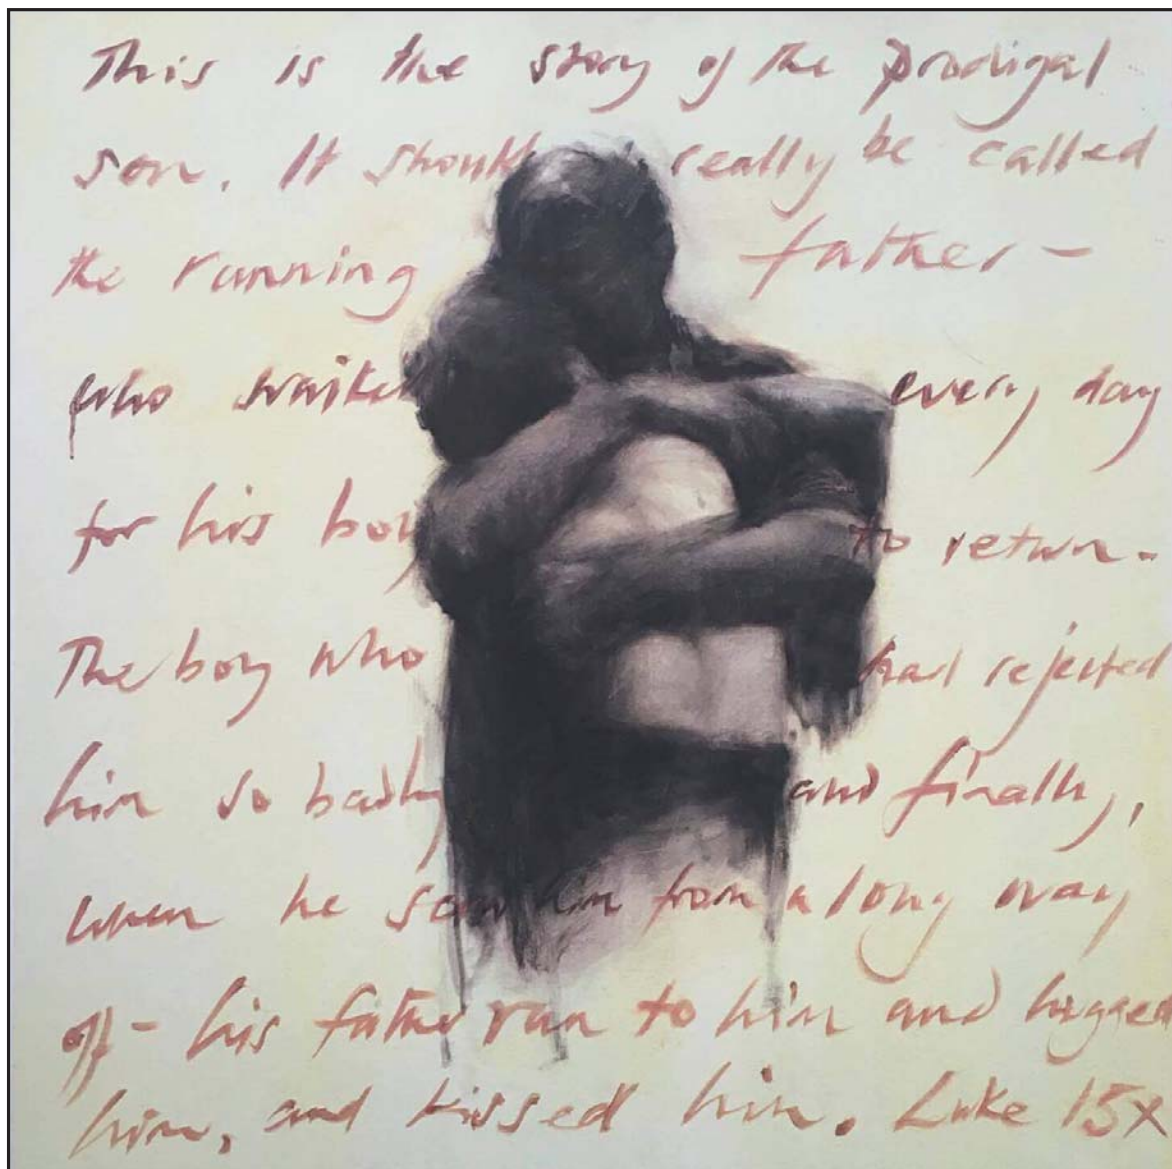 This is the story of the prodigal
son. It should really be called
the running father -
who waited every day
for his boy to return.
The boy who had rejected
him so badly and finally,
when he saw him from a long way
off - his father ran to him and hugged
him, and kissed him. Luke 15x